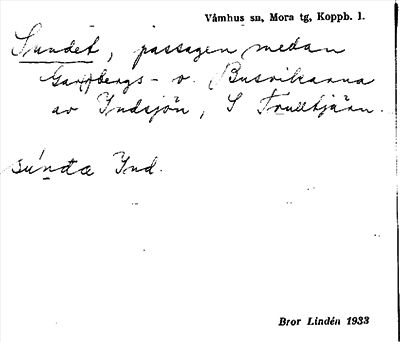 Våmhus sn, Mora tg, Koppb. l.
Sundet, passagen medan
Garpbergs- o. Busvikarna
av Yndsjön, S Trulltjärn.
súnda Ynd.
Bror Lindén 1933